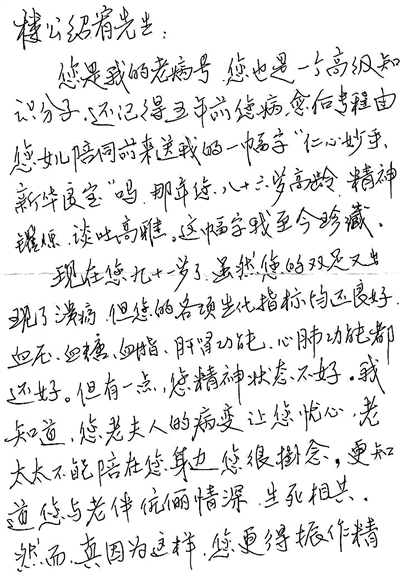 楼公绍宥先生:
您是我的老病号,您也是一个高级知
识分子,还记得五年前您病愈后专程由
您女儿陪同前来送我的一幅字“仁心妙手,
新华医宝”吗,那年您八十六岁高龄,精神
矍烁,谈吐高雅。这幅字我至今珍藏。
现在您九十一岁了,虽然您的双足又出
现了溃疡,但您的各项生化指标均还良好.
血压、血糖、血脂、肝肾功能、心肺功能都
还好。但有一点,您精神状态不好。我
知道,您老夫人的病变让您忧心,老
太太不能陪在您身边,您很掛念。更知
道您与老伴伉俪情深,生死相共.
然而,真因为这样,您更得振作精